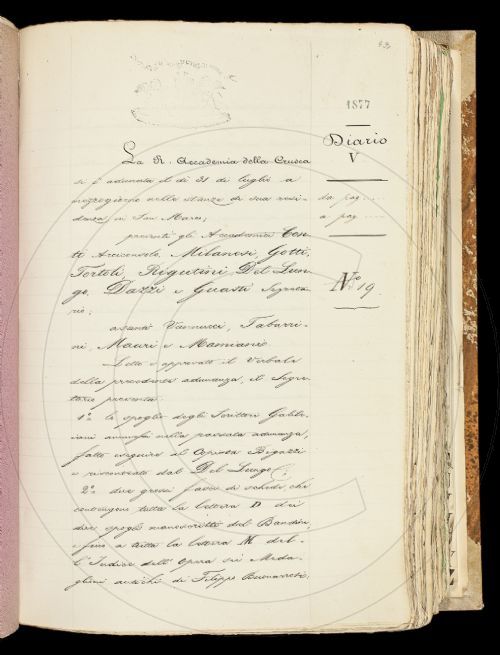 83
1877
Diario
V
da pag.
a pag.
N.º 19.
La R. Accademia della Crusca
si è adunata il dì 31 di luglio a
mezzogiorno nelle stanze di sua resi-
denza in San Marco;
presenti gli Accademici
Arciconsolo, Milanesi, Gotti,
Tortoli, Rigutini, Del Lun-
go, Dazzi e Guasti Segreta-
rio;
assenti Vannucci, Tabarri-
ni, Mauri e Mamiani.
Letto e approvato il Verbale
della precedente adunanza, il Segre-
tario presenta:
1.º lo spoglio degli Scrittori Galile-
iani annunziati nella passata adunanza,
fatto eseguire al Copista Bigazzi
e riscontrato dal Del Lungo;
2.º due grossi fasci di schede, che
contengono tutta la lettera D dei
due spogli manoscritti del Bandini,
e fino a tutta la lettera M del-
l'Indice dell'Opera sui Meda-
glioni antichi di Filippo Buonarroti;